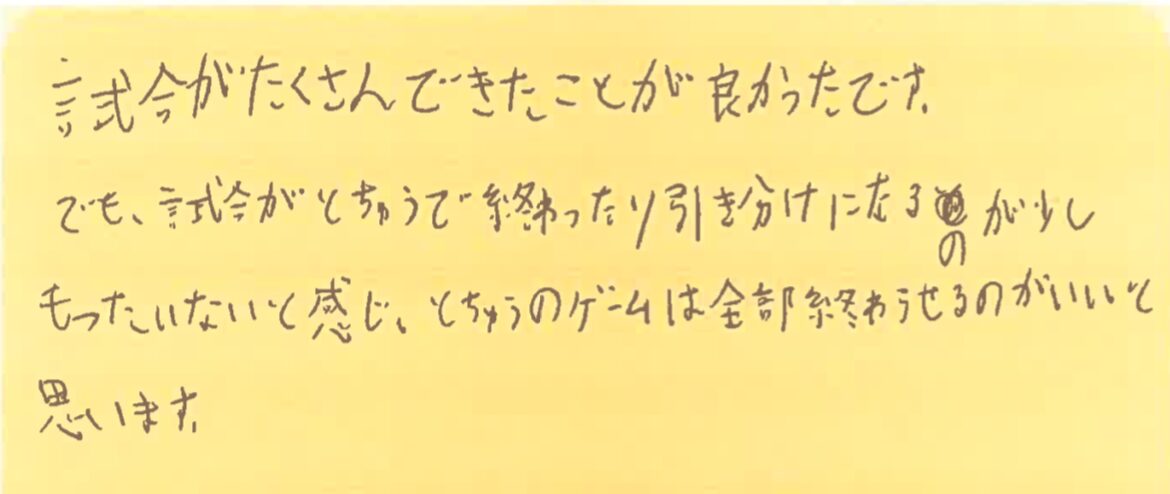 試合がたくさんできたことが良かったです。
でも、試合がとちゅうで終わったり引き分けになるのが少し
もったいないと感じ、とちゅうのゲームは全部終わらせるのがいいと
思います。